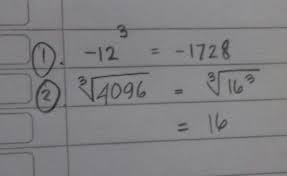 1. -12³ = -1728
2. ∛4096 = ∛16³
= 16